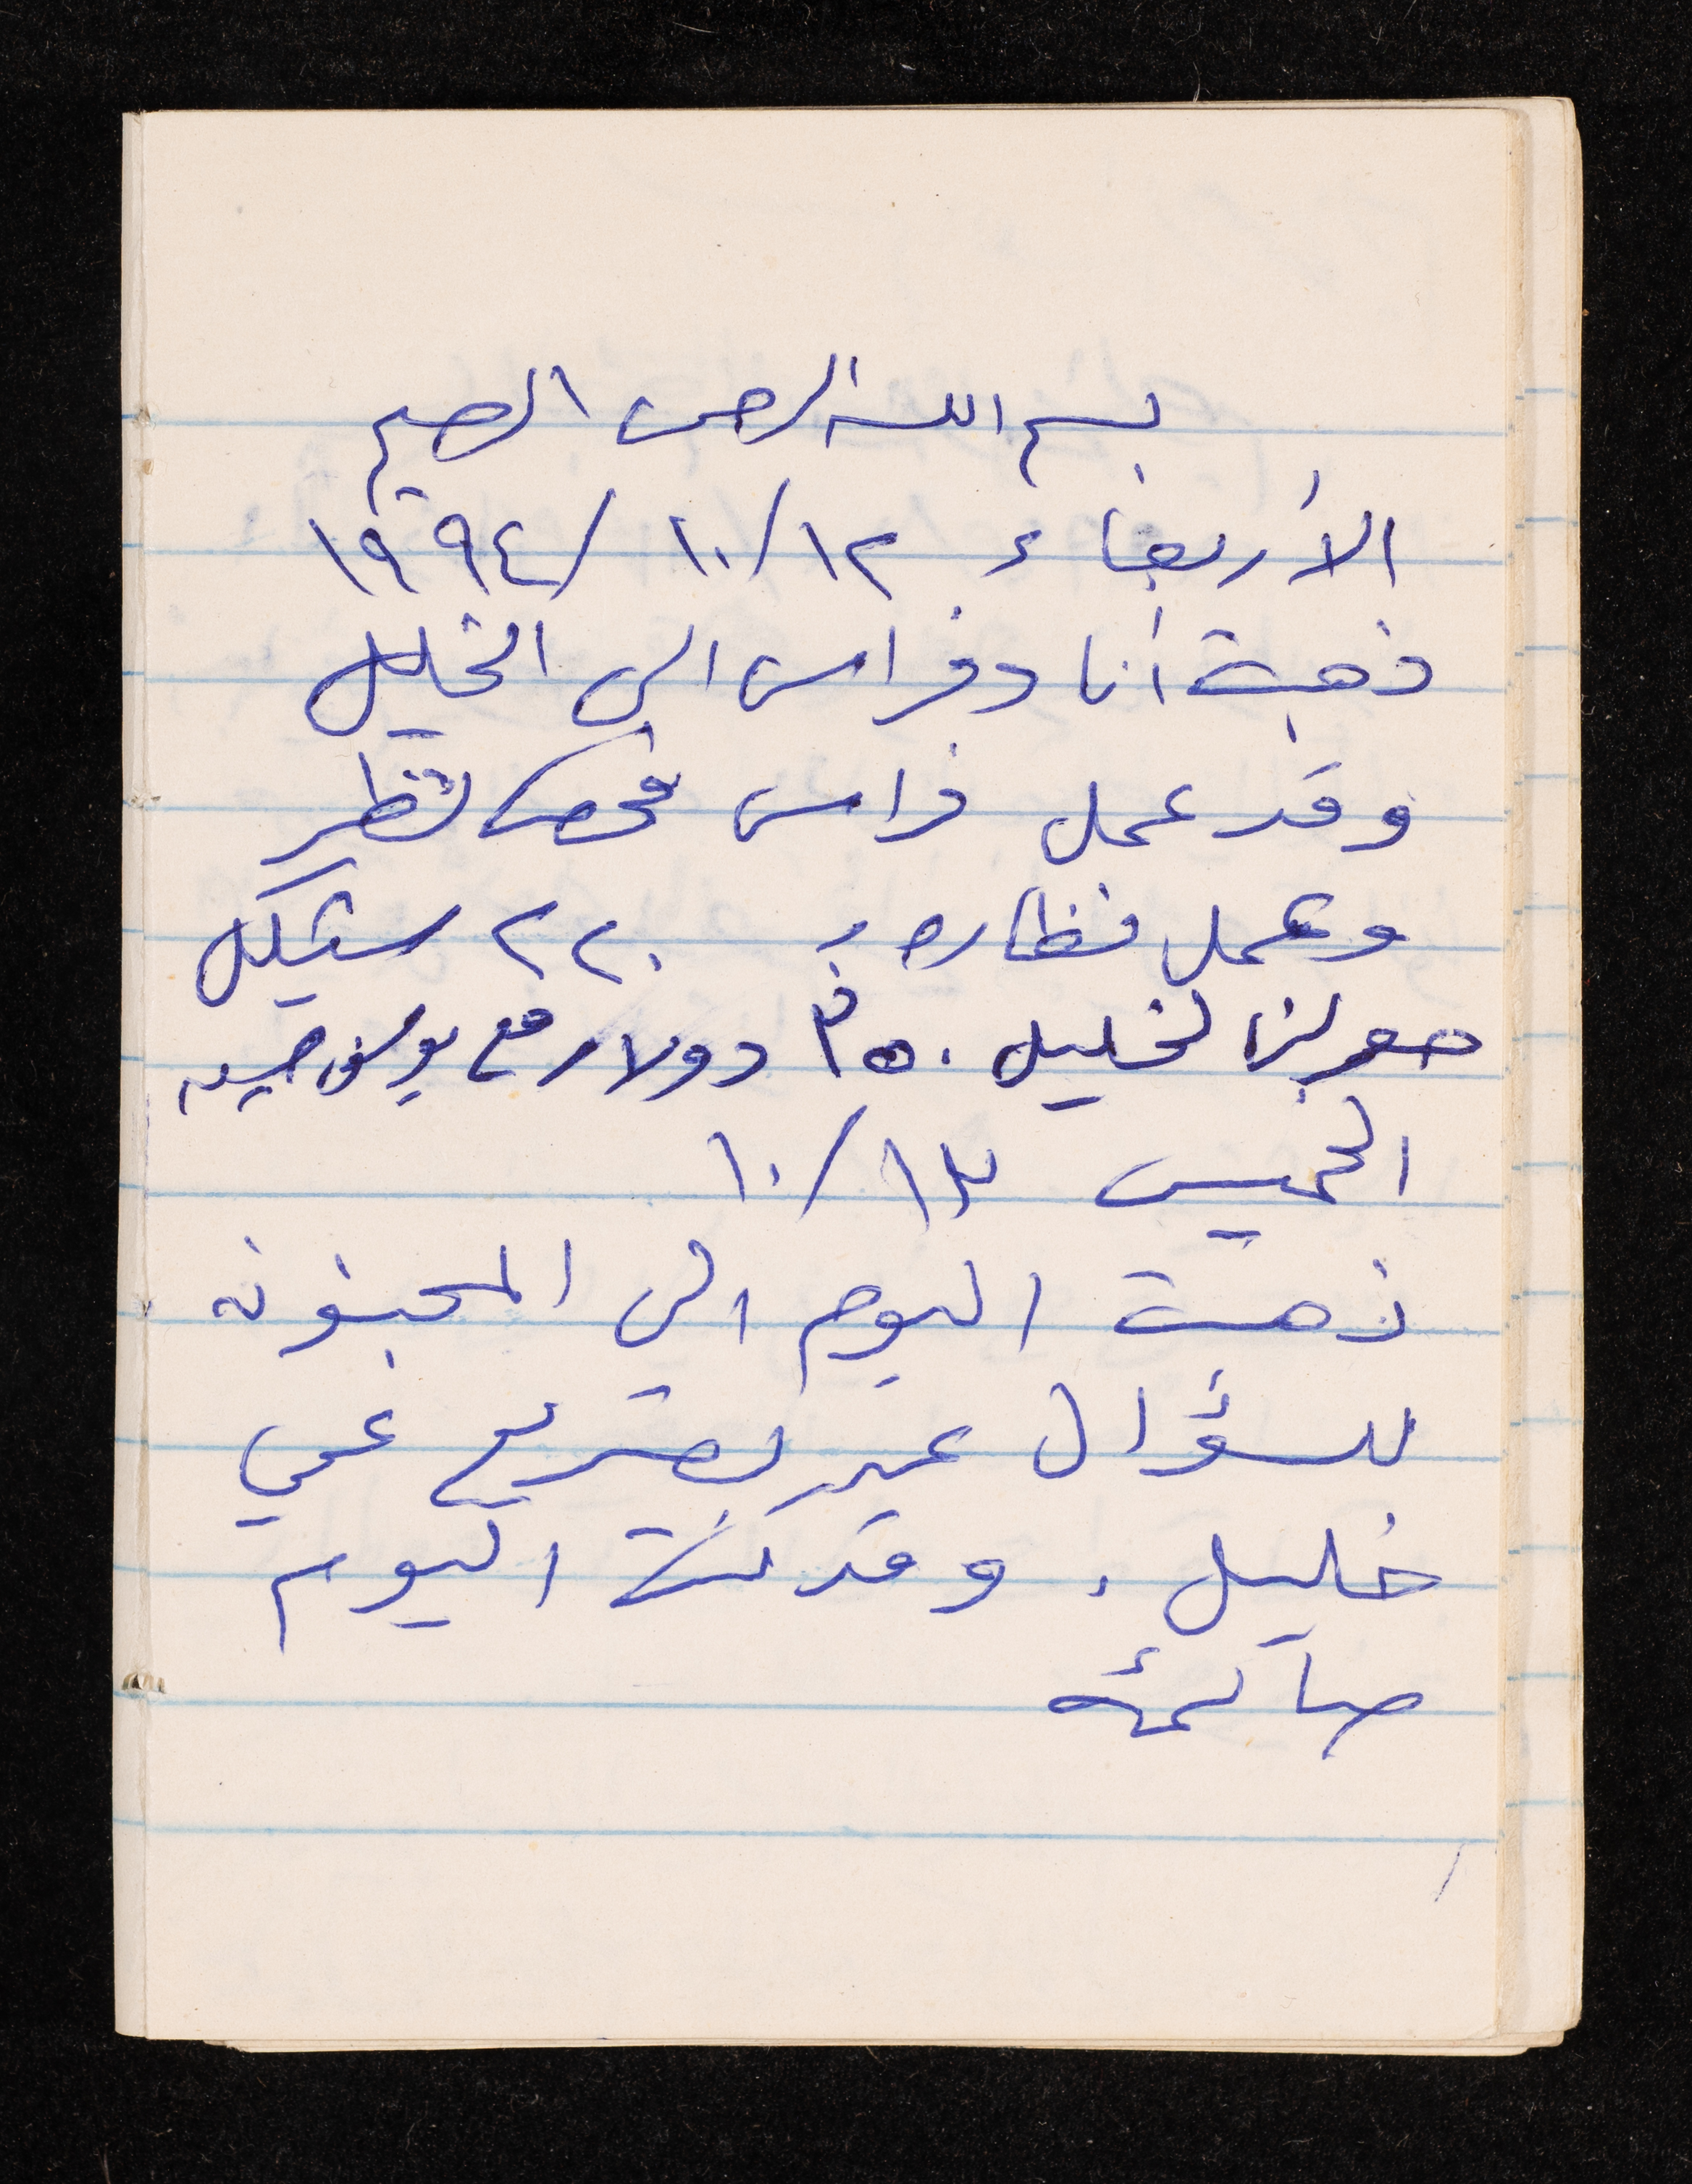 بسم الله الرحمن الرحيم
الأربعاء ١٢/١٠/١٩٩٤
ذهبت أنا وفراس الى الخليل
وقد عمل فراس فحص نظر
وعمل نظاره ب ٢٢٠ شيكل
حولنا لخليل ٣٥٠ دولار مع يوسف
الخميس ١٣/١٠
ذهبت اليوم الى المجنونه
للسؤال عن تصريح عمي
خليل. وقد كنت اليوم
صائمة